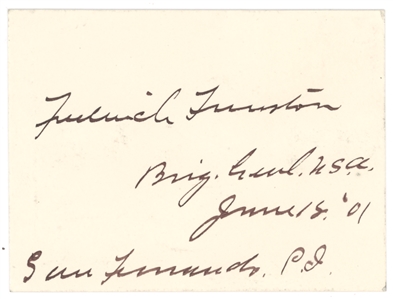 Frederick Funston
Brig. Genl. U.S.A.
June 18. '01
San Fernando, P.I.